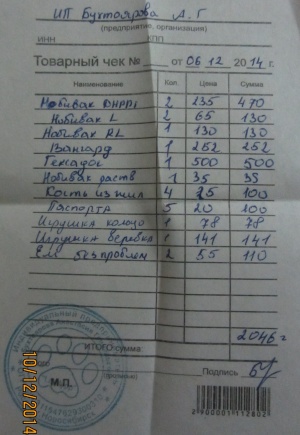 ИП Бухтоярова А. Г
(предприятие, организация)
ИНН КПП
Товарный чек № от 06 12 2014 г.
Наименование Кол. Цена Сумма
Нобивак DHPPi 2 235 470
Нобивак L 2 65 130
Нобивак RL 1 130 130
Вангард 1 252 252
Гексадог 1 500 500
Нобивак раств 1 35 35
Кость из жил 4 25 100
Паспорта 5 20 100
Игрушка кольцо 1 78 78
Игрушка веревка 1 141 141
Ем без проблем 2 55 110
ИТОГО сумма: 2046 г
М.П. Подпись
2900001112802
10/12/2014